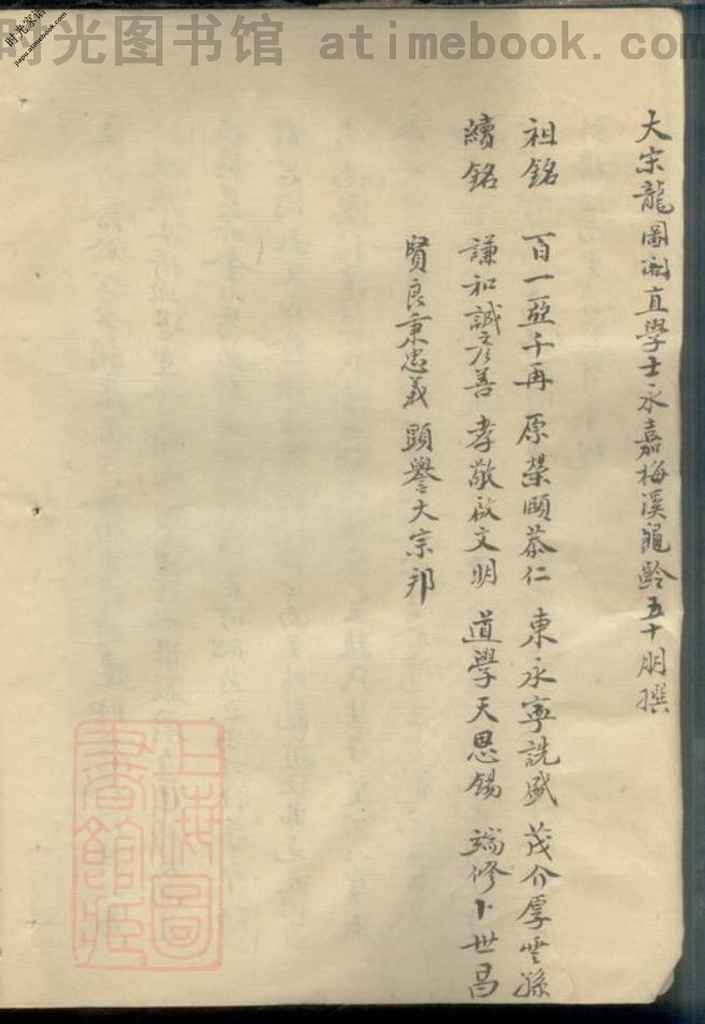 时光图书馆 atimebook.com
时光家谱
jiapu.atimebook.com
大宗龍圖閣直學士永嘉梅溪龜齡五十朋撰
祖銘 百一亞千再 原榮頤恭仁 東永寧詵盛 茂介厚孫
續銘 謙和誠彥善 孝敬啟文明 道學天恩錫 端修卜世昌
賢良秉忠義 顕譽大宗邦
上海圖
書館藏